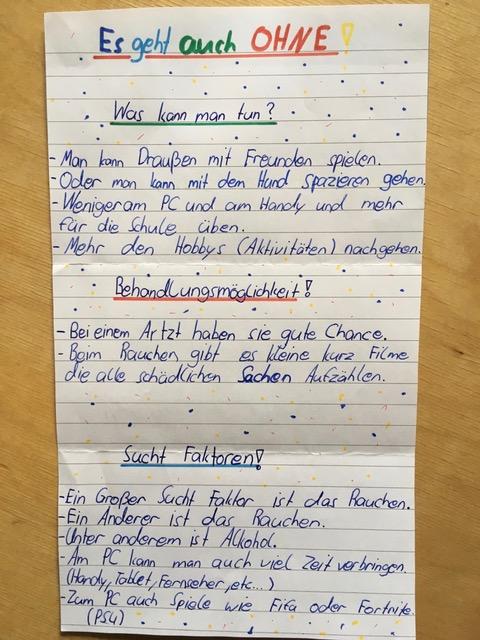 Es geht auch OHNE!
Was kann man tun?
- Man kann Draußen mit Freunden spielen.
- Oder man kann mit dem Hund spazieren gehen.
- Weniger am PC und am Handy und mehr
für die Schule üben.
- Mehr den Hobbys (Aktivitäten) nachgehen.
Behandlungsmöglichkeit!
- Bei einem Artzt haben sie gute Chance.
- Beim Rauchen gibt es kleine kurz Filme
die alle schädlichen Sachen Aufzählen.
Sucht Faktoren!
- Ein Großer Sucht Faktor ist das Rauchen.
- Ein Anderer ist das Rauchen.
- Unter anderem ist Alkohol.
- Am PC kann man auch viel Zeit verbringen.
(Handy, Tablet, Fernseher, etc...)
- Zum PC auch Spiele wie Fifa oder Fortnite.
(PS4)